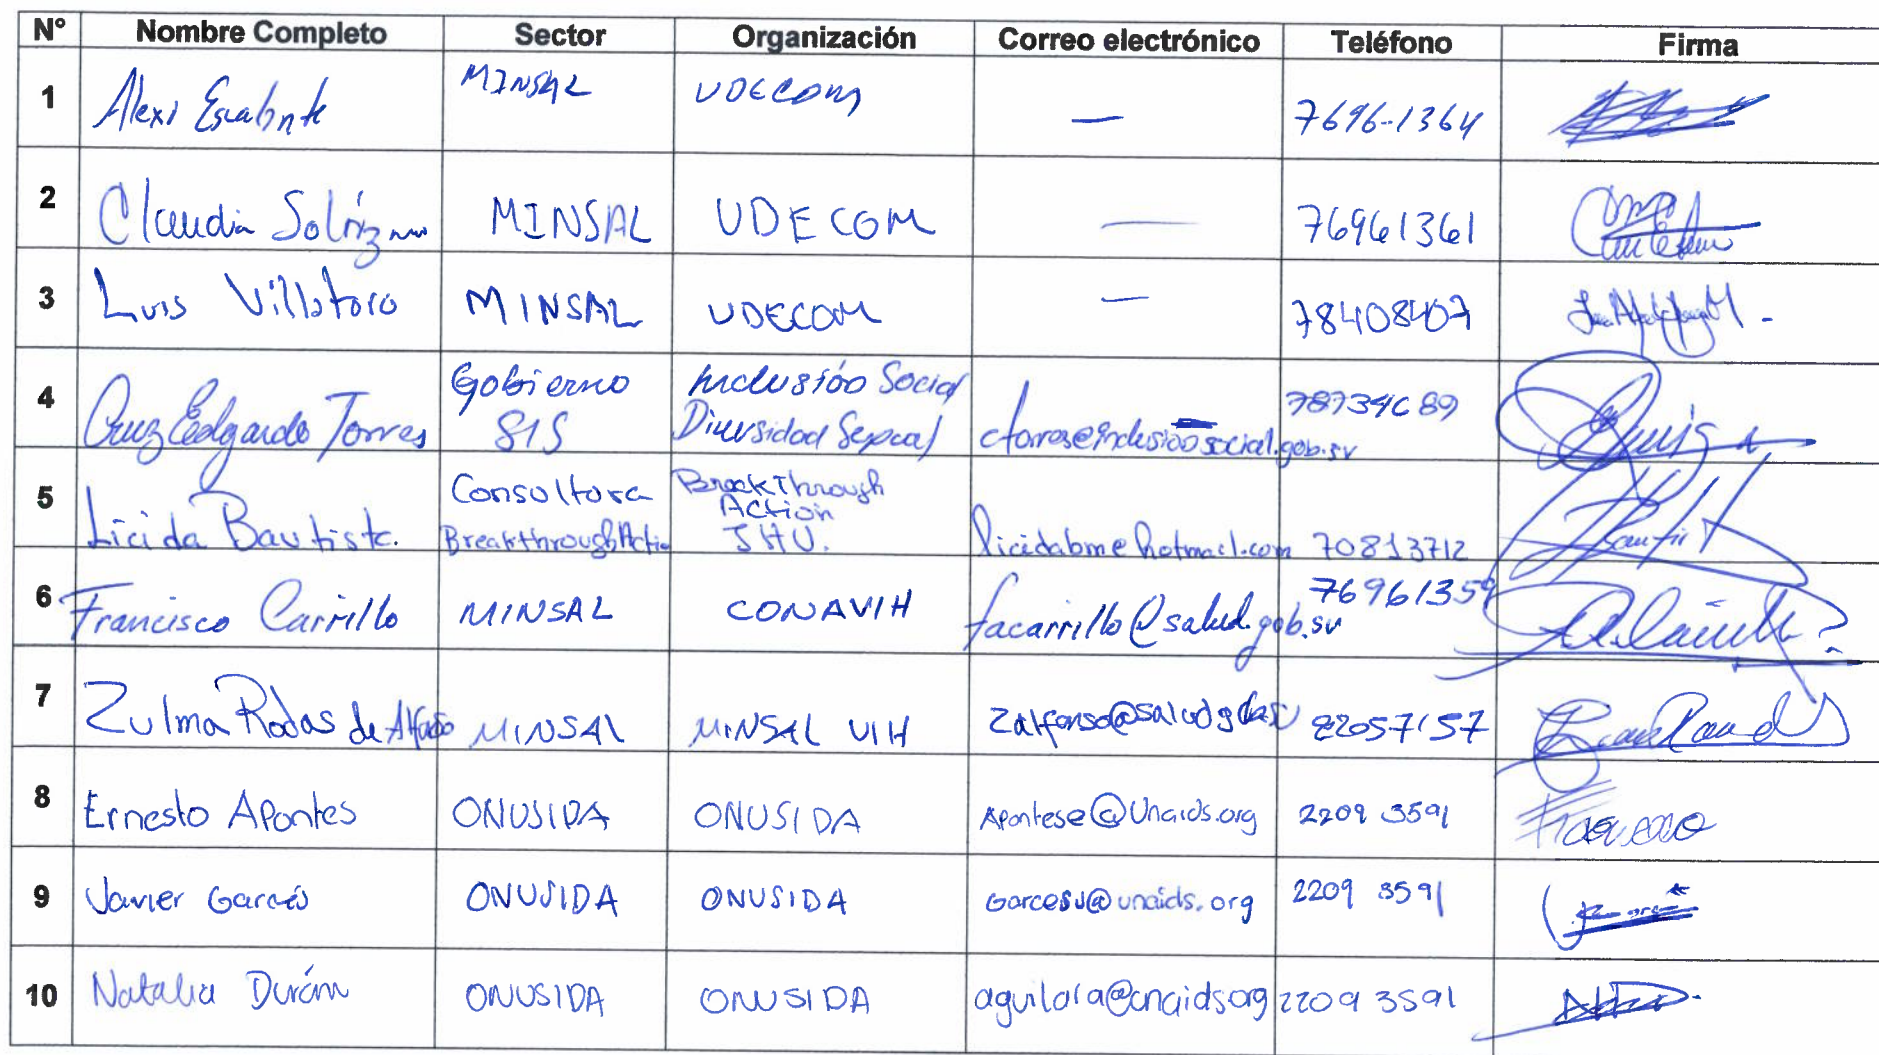 N° Nombre Completo Sector Organización Correo electrónico Teléfono Firma
1 Alexi Escalante MINSAL UDECOM — 7696-1364
2 Claudia Solórzano MINSAL UDECOM — 76961361
3 Luis Villatoro MINSAL UDECOM — 78408407
4 Cruz Edgardo Torres Gobierno SIS Inclusión Social Diversidad Sexual ctorres@inclusionsocial.gob.sv 78734689
5 Licida Bautista. Consultora BreakthroughActio BreakThrough Action JHU. licidabm@hotmail.com 70813712
6 Francisco Carrillo MINSAL CONAVIH facarrillo@salud.gob.sv 76961359
7 Zulma Rodas de Alfaro MINSAL MINSAL VIH 22057157
8 Ernesto Apontes ONUSIDA ONUSIDA Apontese@Unaids.org 2209 3591
9 Javier Garcés ONUSIDA ONUSIDA Garcesj@unaids.org 2209 3591
10 Natalia Durán ONUSIDA ONUSIDA aguilara@unaids.org 2209 3591